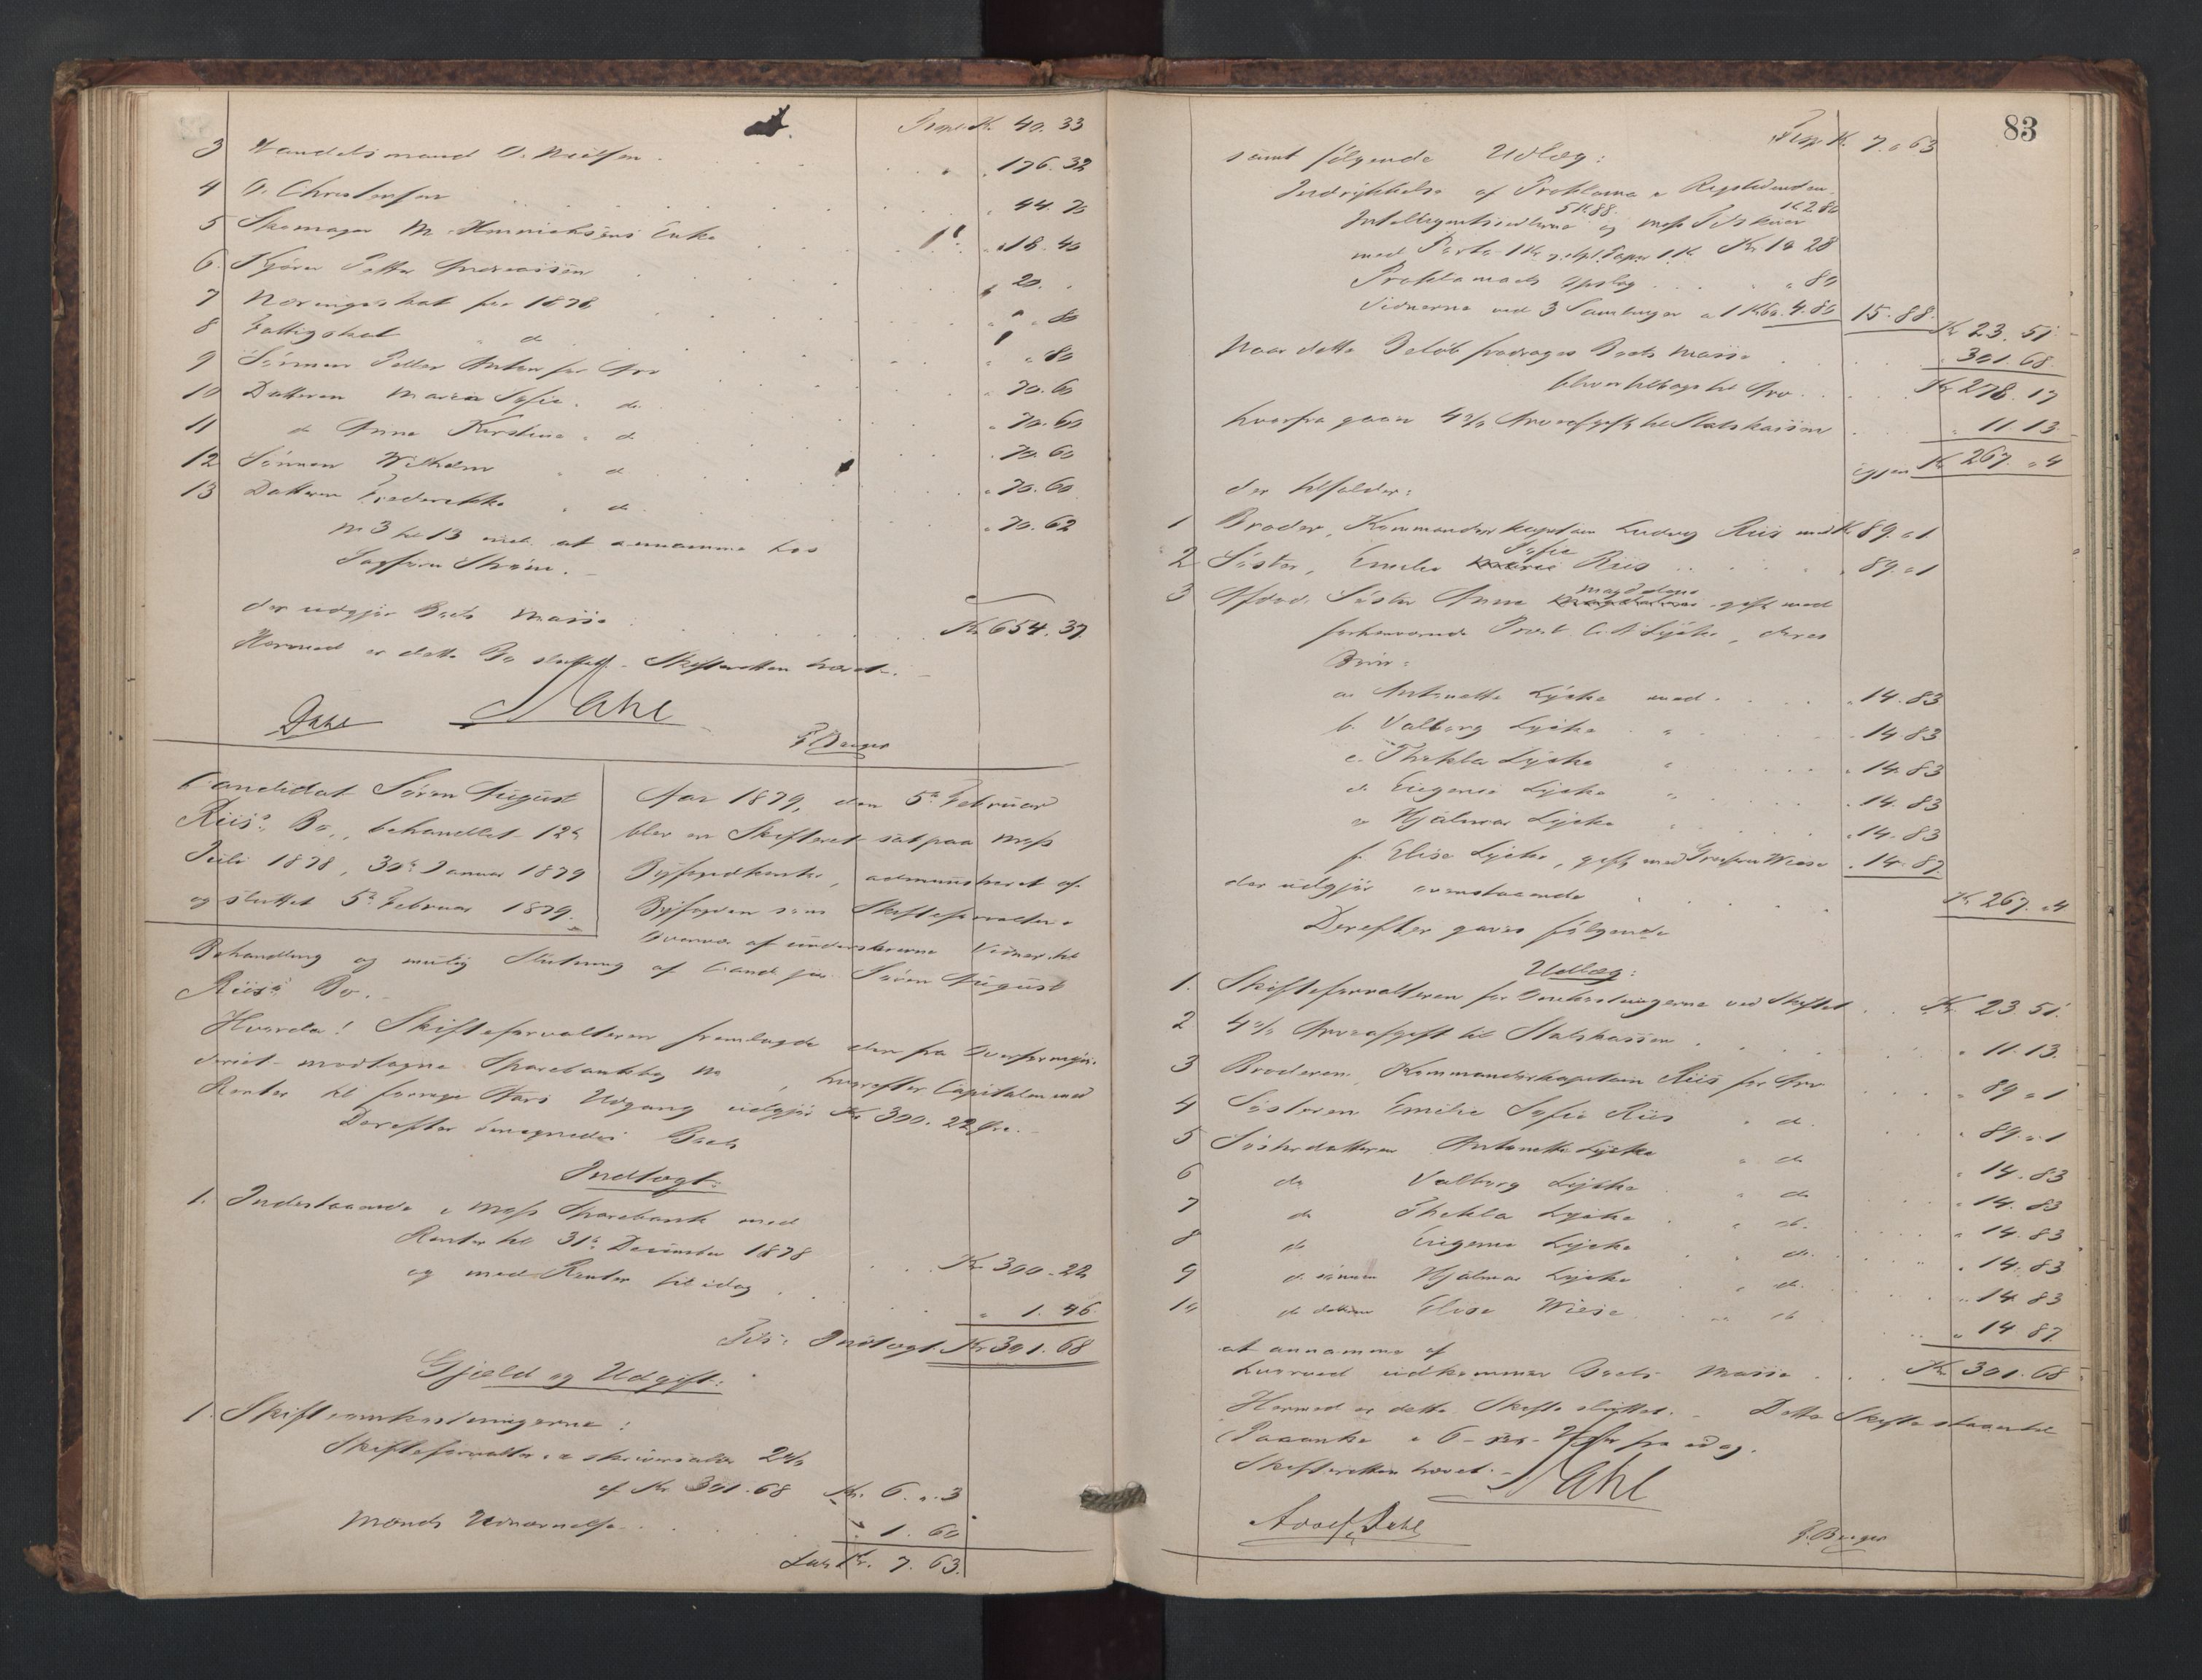 Transp. Kr. 40. 33
3 Handelsmand O. Nielsen . . . „ 176. 32
4 O. Christensen . . . „ 44. 70
5 Skomager M. Hinrichsens Enke . . . „ 18. 40
6. Kjører Petter Andreassen . . . „ 20. „
7 Næringsskat for 1878 . . . „ „ 80
8 Fattigskat „ do . . . „ „ 80
9 Sønnen Petter Anton for Arv . . . „ 70. 60
10 Datteren Maria Sofie „ do . . . „ 70. 60
11 do Anna Kirstine „ do . . . „ 70. 60
12 Sønnen Wilhelm „ do . . . „ 70. 60
13 Datteren Frederikke „ do . . . „ 70. 62
No 3 til 13 incl. at annamme hos
Sagfører Strøm. –
der udgjør Boets Masse . . . Kr 654. 37.
Hermed er dette Bo sluttet. – Skifteretten hævet. –
Dahl
Dahl
F. Berger
Candidat Søren August
Riis's Bo, behandlet 12te
Juli 1878, 30te Januar 1879
og sluttet 5te Februar 1879.
Aar 1879, den 5te Februar
blev en Skifteret sat paa Moss
Byfogedkontor, administreret af
Byfogden som Skifteforvalter i
Overvær af underskrevne Vidner til
Behandling og mulig Slutning af Cand. jur. Søren August
Riis's Bo. –
Hvorda! Skifteforvalteren fremlagde den fra Overformynderiet
modtagne Sparebankbog No , hvorefter Capitalen med
Renter til forrige Aars Udgang udgjør Kr 300. 22 Øre. –
Derefter beregnedes Boets
Indtægt:
1. Indestaaende i Moss Sparebank med
Renter til 31te December 1878 . . Kr 300. 22
og med Renter til idag . . . „ 1. 46
Tils. Indtægt Kr 301. 68
Gjæld og Udgift:
1. Skifteomkostningerne:
Skifteforvalter- & skriversalær 2%
af Kr. 301. 68 Kr. 6. „ 3
Mænds Udnævnelse . . . „ 1. 60
Lat. Kr. 7. 63.
83
Transp. Kr. 7. „ 63
samt følgende Udlæg:
Indrykkelse af Proklama i Rigstidenden
5 K 88. 1 K 2 80
Intelligentssedlerne og Moss Tilskuer
med Porto 1 Kr Kr 10 28
Proklamaets Opslag . . . „ 80
Vidnerne ved 3 Samlinger a 1 K 60. 4. 80 15. 88. Kr 23. 51
Naar dette Beløb fradrages Boets Masse . . . „ 301. 68.
bliver tilbage til Arv . . . Kr 278. 17
hvorfra gaar 4% Arveafgift til Statskassen . . . „ 11. 13.
igjen Kr 267. „ 4
der tilfalder:
1 Broder, Kommandørkaptein Ludvig Riis med Kr 89. „ 1
2 Søster, Emilie Sofie Riis . . . „ 89. „ 1
3 Afdød Søster Anna Magdalena gift med
forhenværende Provst Lyche, deres
Børn:
a. Antonette Lyche med . . . „ 14. 83
b. Valborg Lyche „ . . . „ 14. 83
c. Thekla Lyche „ . . . „ 14. 83
d. Eugenie Lyche „ . . . „ 14. 83
e Hjalmar Lyche „ . . . „ 14. 83
f. Elise Lyche, gift med Wiese „ 14. 87.
der udgjør ovenstaaende . . . Kr 267. „ 4
Derefter gaves følgende
Udlæg:
1. Skifteforvalteren for Omkostningerne ved Skiftet . . Kr. 23. 51.
2 4% Arveafgift til Statskassen . . . „ 11. 13.
3 Broderen, Kommandørkaptein Riis for Arv . . . „ 89 „ 1
4 Søsteren Emilie Sofie Riis „ do . . . „ 89. „ 1
5 Søsterdatteren Antonette Lyche „ do . . . „ 14. 83
6 do Valborg Lyche „ do . . . „ 14. 83
7 do Thekla Lyche „ do. . . . „ 14. 83
8 do Eugenie Lyche „ do. . . . „ 14. 83
9 do sønnen Hjalmar Lyche „ do. . . . „ 14. 83
10 do datteren Elise Wiese „ do . . . „ 14 87.
at annamme af
hvorved udkommer Boets Masse . . . Kr. 301. 68
Hermed er dette Skifte sluttet. – Dette Skifte staar til
Paaanke i 6 – sex – Uger fra idag.
Skifteretten hævet. –
Dahl
Adolf Dahl
F. Berger